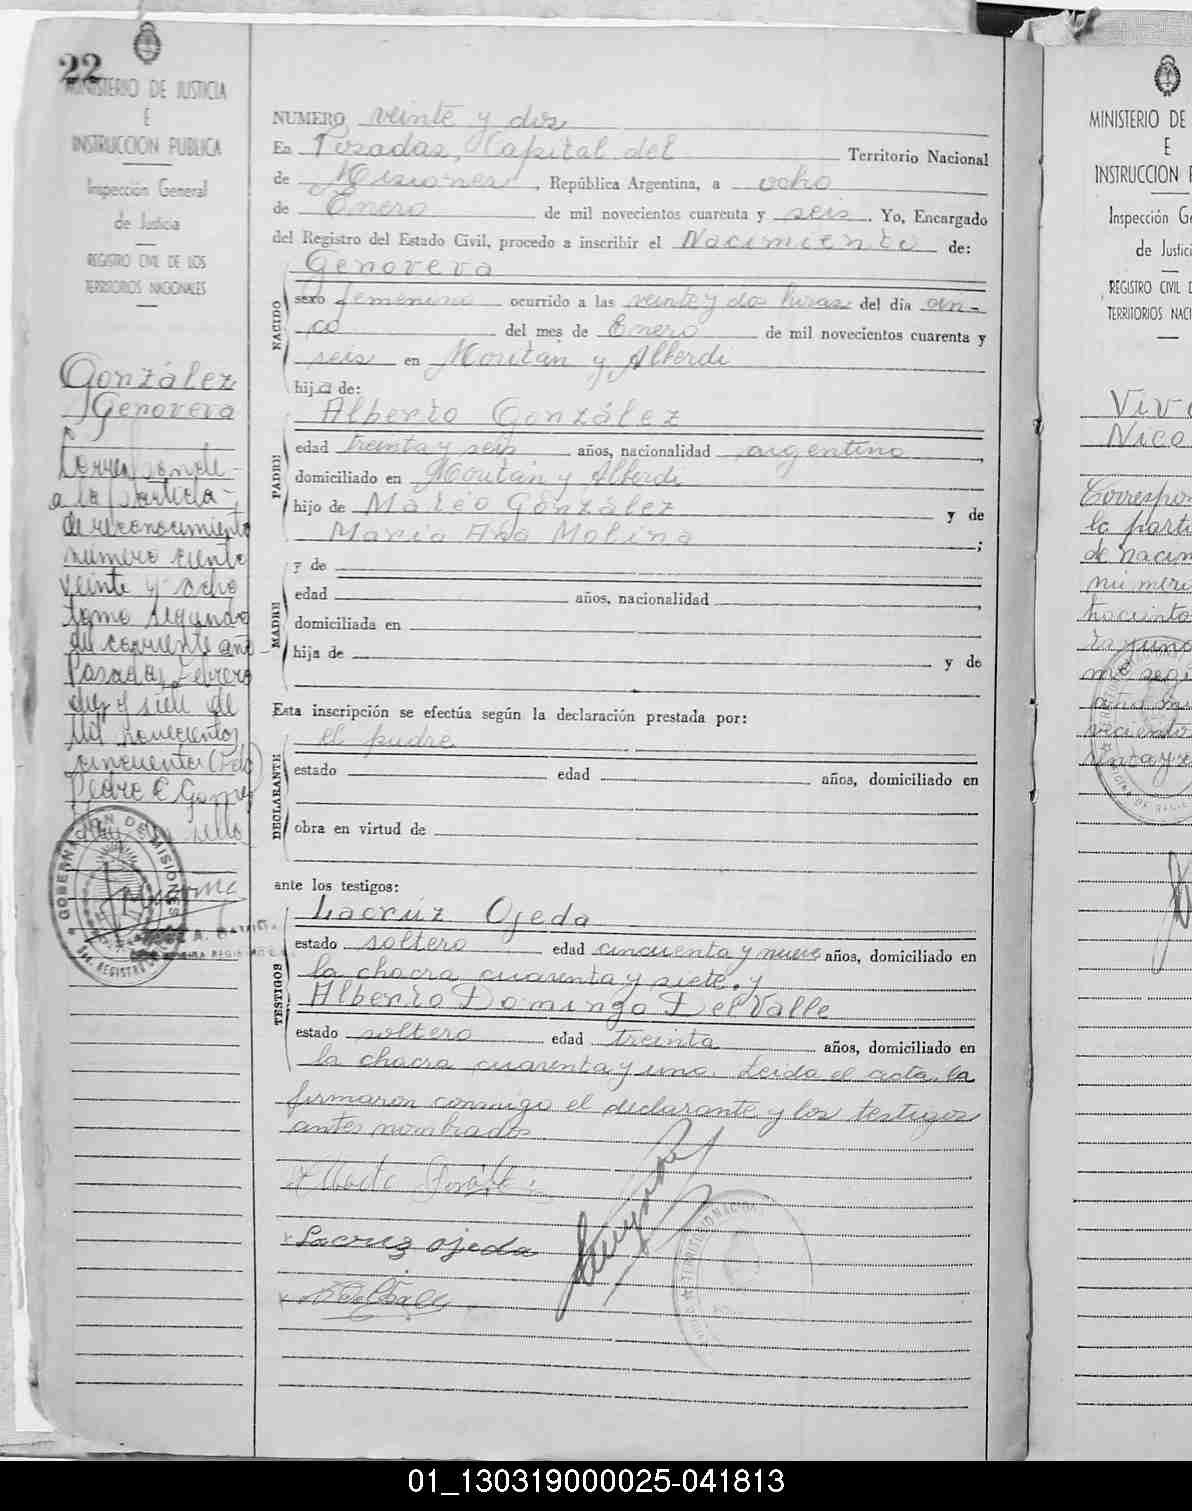 22
MINISTERIO DE JUSTICIA
E
INSTRUCCION PUBLICA
Inspección General
de Justicia
REGISTRO CIVIL DE LOS
TERRITORIOS NACIONALES
González
Genoveva
Corresponde
a la partida
de reconocimiento
número ciento
veinte y ocho
tomo segundo
del corriente año
Posadas, Febrero
diez y siete de
mil novecientos
cincuenta (Fdo)
Pedro E. Gomez
sello
GOBERNACION DE MISIONES
NUMERO veinte y dos
En Posadas, Capital del Territorio Nacional
de Misiones, República Argentina, a ocho
de Enero de mil novecientos cuarenta y seis. Yo, Encargado
del Registro del Estado Civil, procedo a inscribir el Nacimiento de:
Genoveva
NACIDO
sexo femenino ocurrido a las veinte y dos horas del día cin-
co del mes de Enero de mil novecientos cuarenta y
seis en Moritán y Alberdi
hija de:
PADRE
Alberto González
edad treinta y seis años, nacionalidad argentino,
domiciliado en Moritán y Alberdi
hijo de Mateo González y de
María Ana Molina;
MADRE
y de
edad años, nacionalidad
domiciliada en
hija de y de
Esta inscripción se efectúa según la declaración prestada por:
DECLARANTE
el padre
estado edad años, domiciliado en
obra en virtud de
ante los testigos:
TESTIGOS
Lacrúz Ojeda
estado soltero edad cincuenta y nueve años, domiciliado en
la chacra cuarenta y siete, y
Alberto Domingo Del Valle
estado soltero edad treinta años, domiciliado en
la chacra cuarenta y una. Leida el acta, la
firmaron conmigo el declarante y los testigos
antes nombrados
Lacruz ojeda
MINISTERIO DE
E
INSTRUCCION P
Inspección Ge
de Justic
REGISTRO CIVIL D
TERRITORIOS NACI
Nico
Correspon
la parti
de nacim
númer
01_130319000025-041813